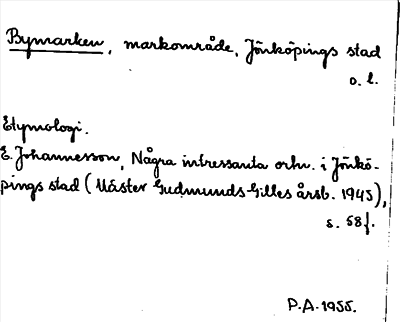 Bymarken, markområde, Jönköpings stad
o. l.
Etymologi.
E. Johannesson, Några intressanta ortn. i Jönkö-
pings stad (Mäster Gudmunds Gilles årsb. 1945),
s. 58f.
P.A. 1955.